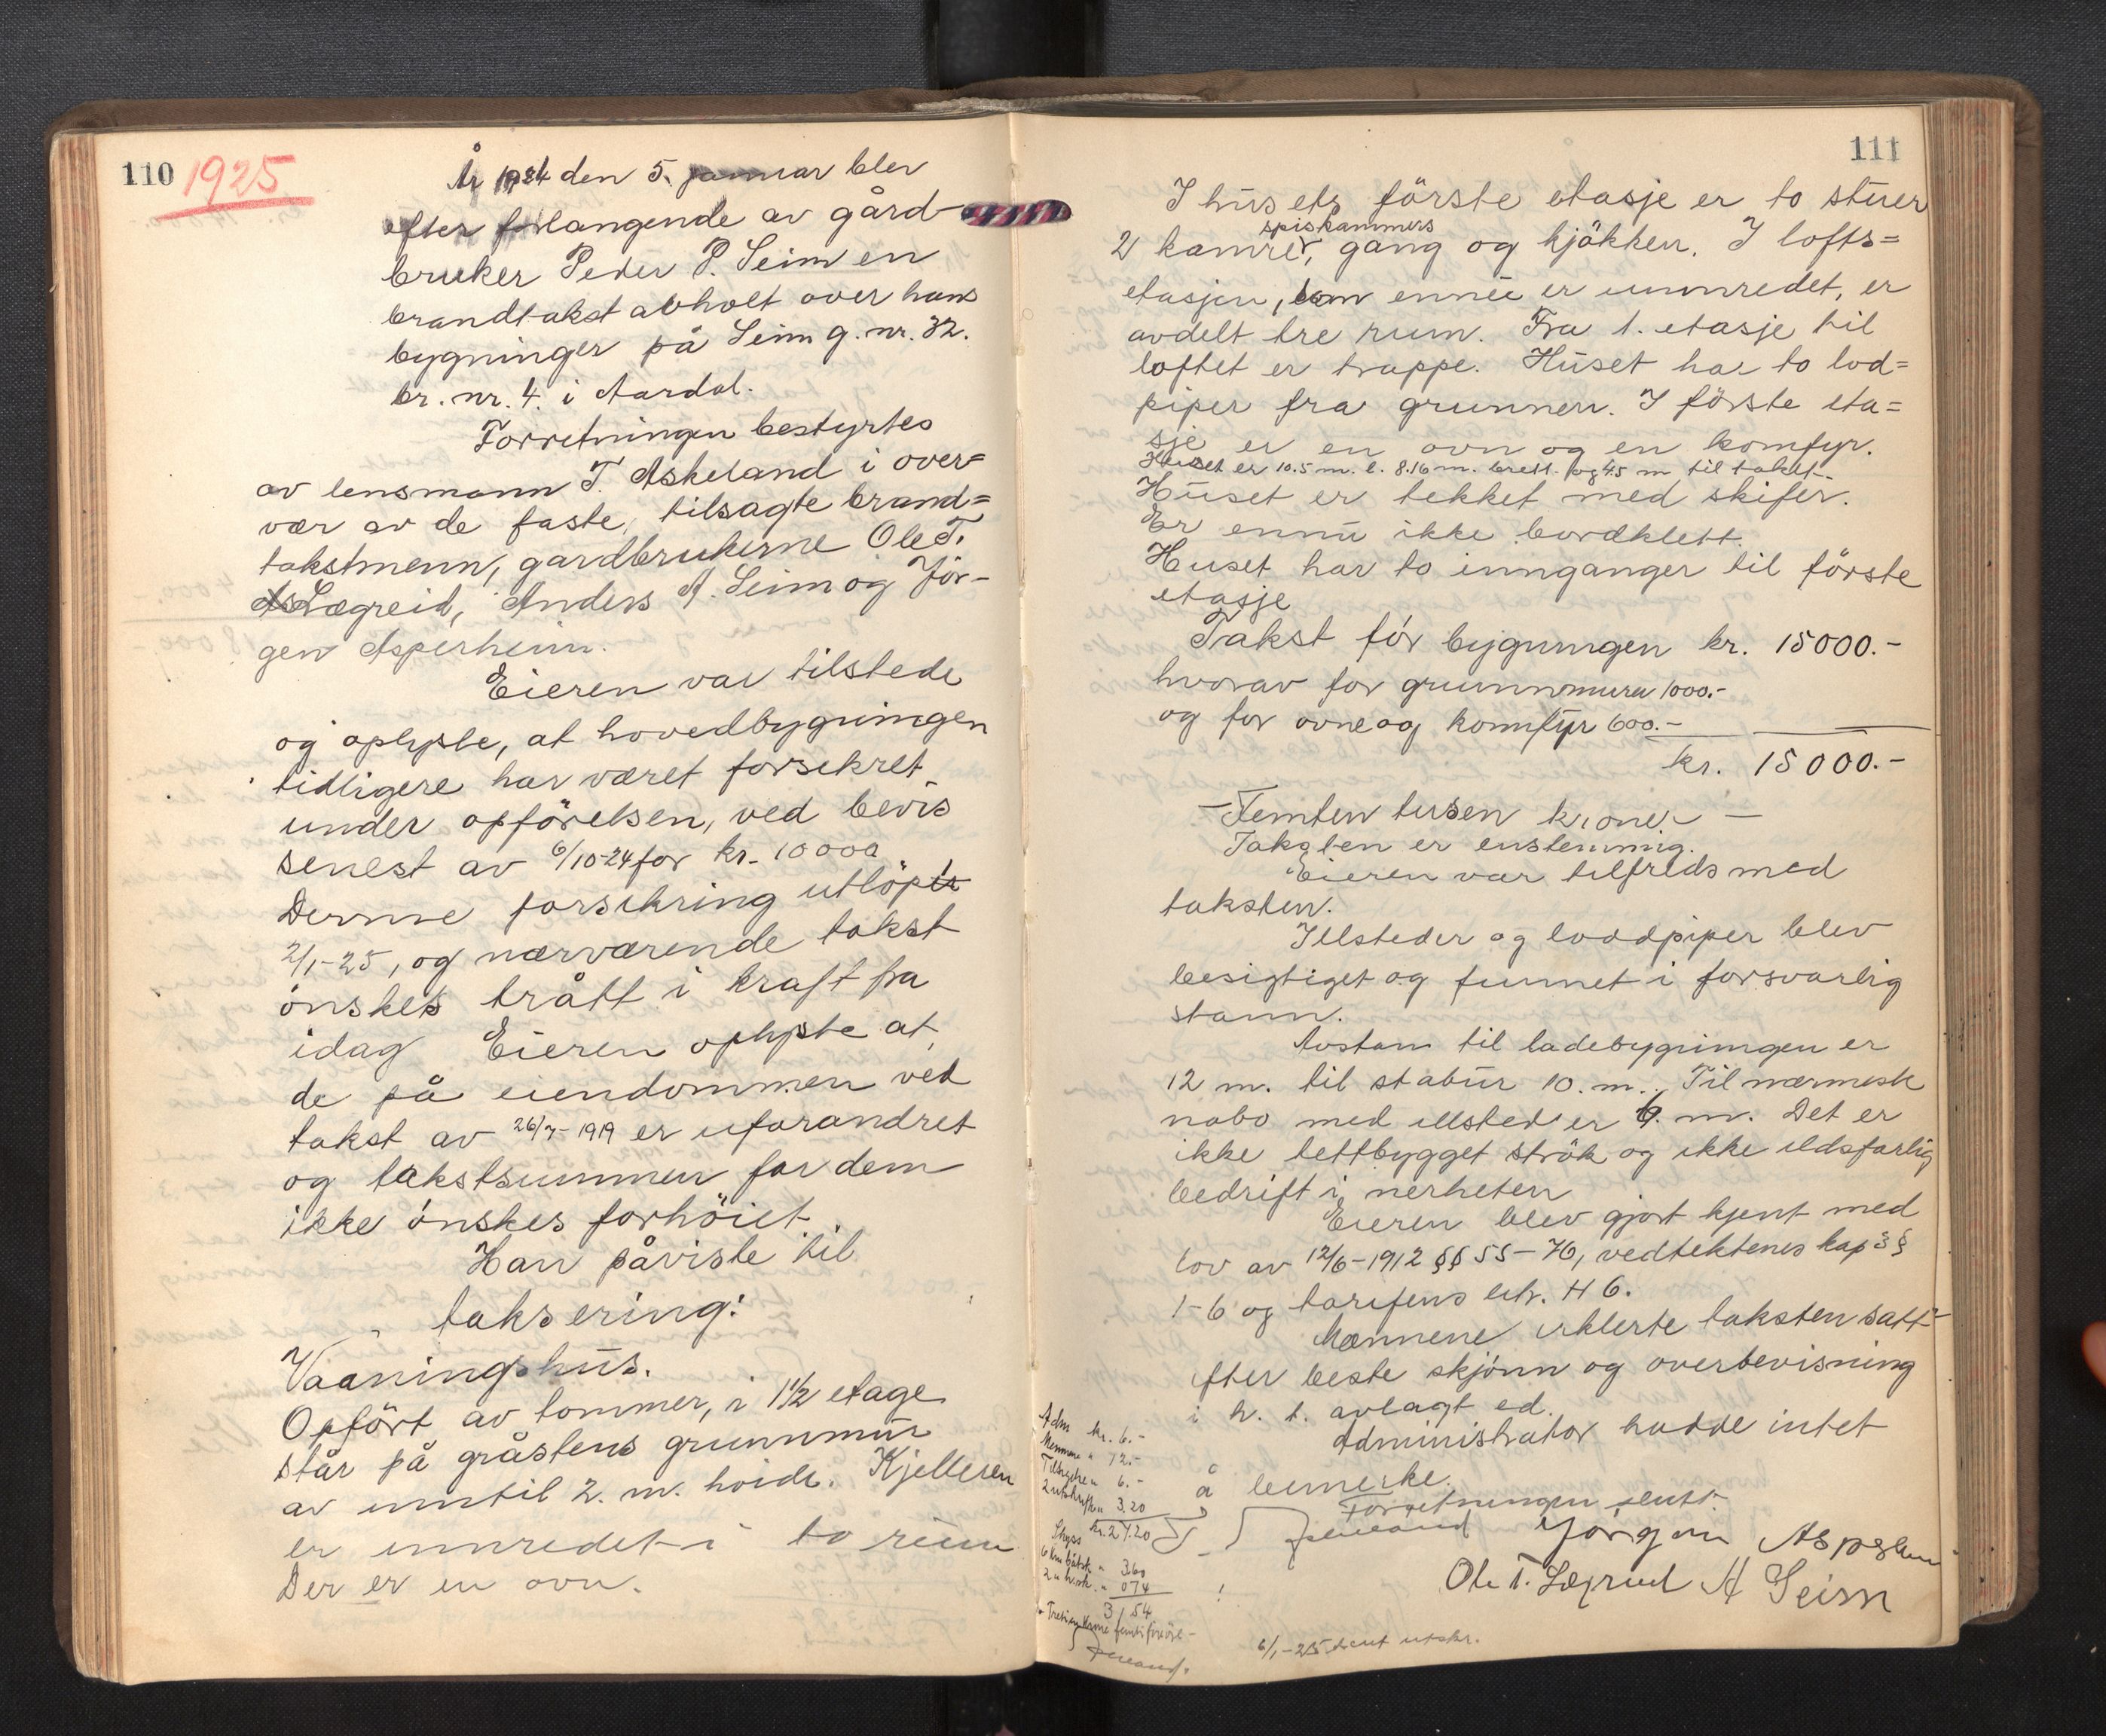 110 1925
År 1924 den 5. januar blev
efter forlangende av gård-
bruker Peder P. Seim en
brandtakst avholt over hans
bygninger på Seim g. nr. 32.
br. nr. 4 i Aardal.
Forretningen bestyrtes
av lensmann T. Askeland i over=
vær av de faste, tilsagte brand=
takstmenn, gardbrukerne Ole T.
Lægreid, Anders A. Seim og Jör-
gen Asperheim.
Eieren var tilstede
og oplyste, at hovedbygningen
tidligere har været forsekret
under opförelsen, ved bevis
senest av 6/10-24 for kr. 10000
Denne forsikring utlöp
2/1-25, og nærværende takst
önskes trått i kraft fra
idag Eieren oplyste at
de på eiendommen ved
takst av 26/7-1919 er uforandret
og takstsummen for dem
ikke önskes forhöiet.
Han påviste til
taksering:
Vaaningshus.
Opfört av tommer, i 1 1/2 etage
står på gråstens grunnmur
av inntil 2. m. höide. Kjelleren
er innredet i to rum
Der er en ovn.
111
I husets förste etasje er to stuer
spiskammers
2 kamrer, gang og kjökken. I lofts=
etasjen, som ennu er uinnredet, er
avdelt tre rum. Fra 1. etasje til
loftet er trappe. Huset har to lod=
piper fra grunnen. I förste eta=
sje er en ovn og en komfyr.
Huset er 10.5 m. l. 8.16 m. bredt. og 4.5 m til taket.
Huset er tekket med skifer.
Er ennu ikke bordklett.
Huset har to innganger til förste
etasje
Takst for bygningen kr. 15000.-
hvorav for grunnmuren 1000.-
og for ovne og komfyr 600.-
kr. 15000.-
- Femten tusen kroner -
Taksten er enstemmig.
Eieren var tilfreds med
taksten.
Illsteder og loddpiper blev
besigtiget og funnet i forsvarlig
stann.
Avstann til ladebygningen er
12 m. til stabur 10. m. Til nærmeste
nabo med illsted er 9. m. Det er
ikke tettbygget strök og ikke ildsfarlig
bedrift i nerheten
Eieren blev gjort kjent med
lov av 12/6-1912 §§ 55-76, vedtektenes kap 3 §
1-6 og tarifens litr. H 6.
Mennene erklerte taksten satt
efter beste skjönn og overbevisning
i h. t. avlagt ed.
Administrator hadde intet
å bemerke.
Forretningen slutt.
Jörgen Asperheim
Ole T. Lægreid A Seim
Adm kr. 6.-
Mennene " 12.-
Tilsigelse " 6.-
2 utskrifter " 3,20
kr. 27.20
Skyss
3.60
0 74
3,54
6/1-25 sent utskr.